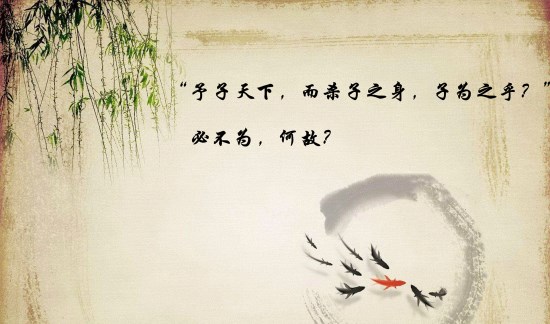 “予子天下，而杀子之身，子为之乎？”
必不为，何故？